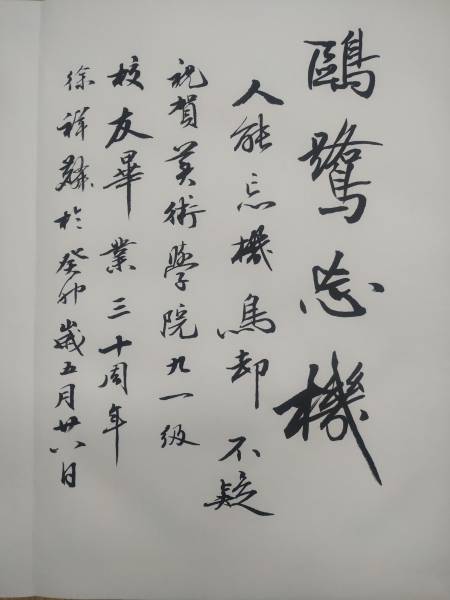 鷗鷺忘機
人能忘機鳥却不疑
祝賀美術學院九一級
校友畢業三十周年
徐祥於癸卯歲五月廿八日